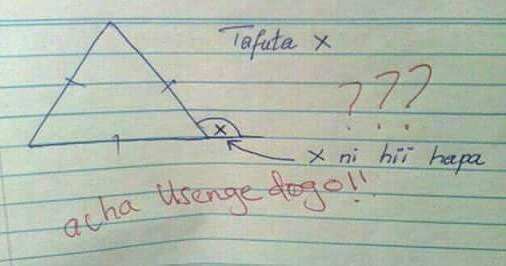 Tafuta x
???
x
x ni hii hapa
acha Usenge dogo!!